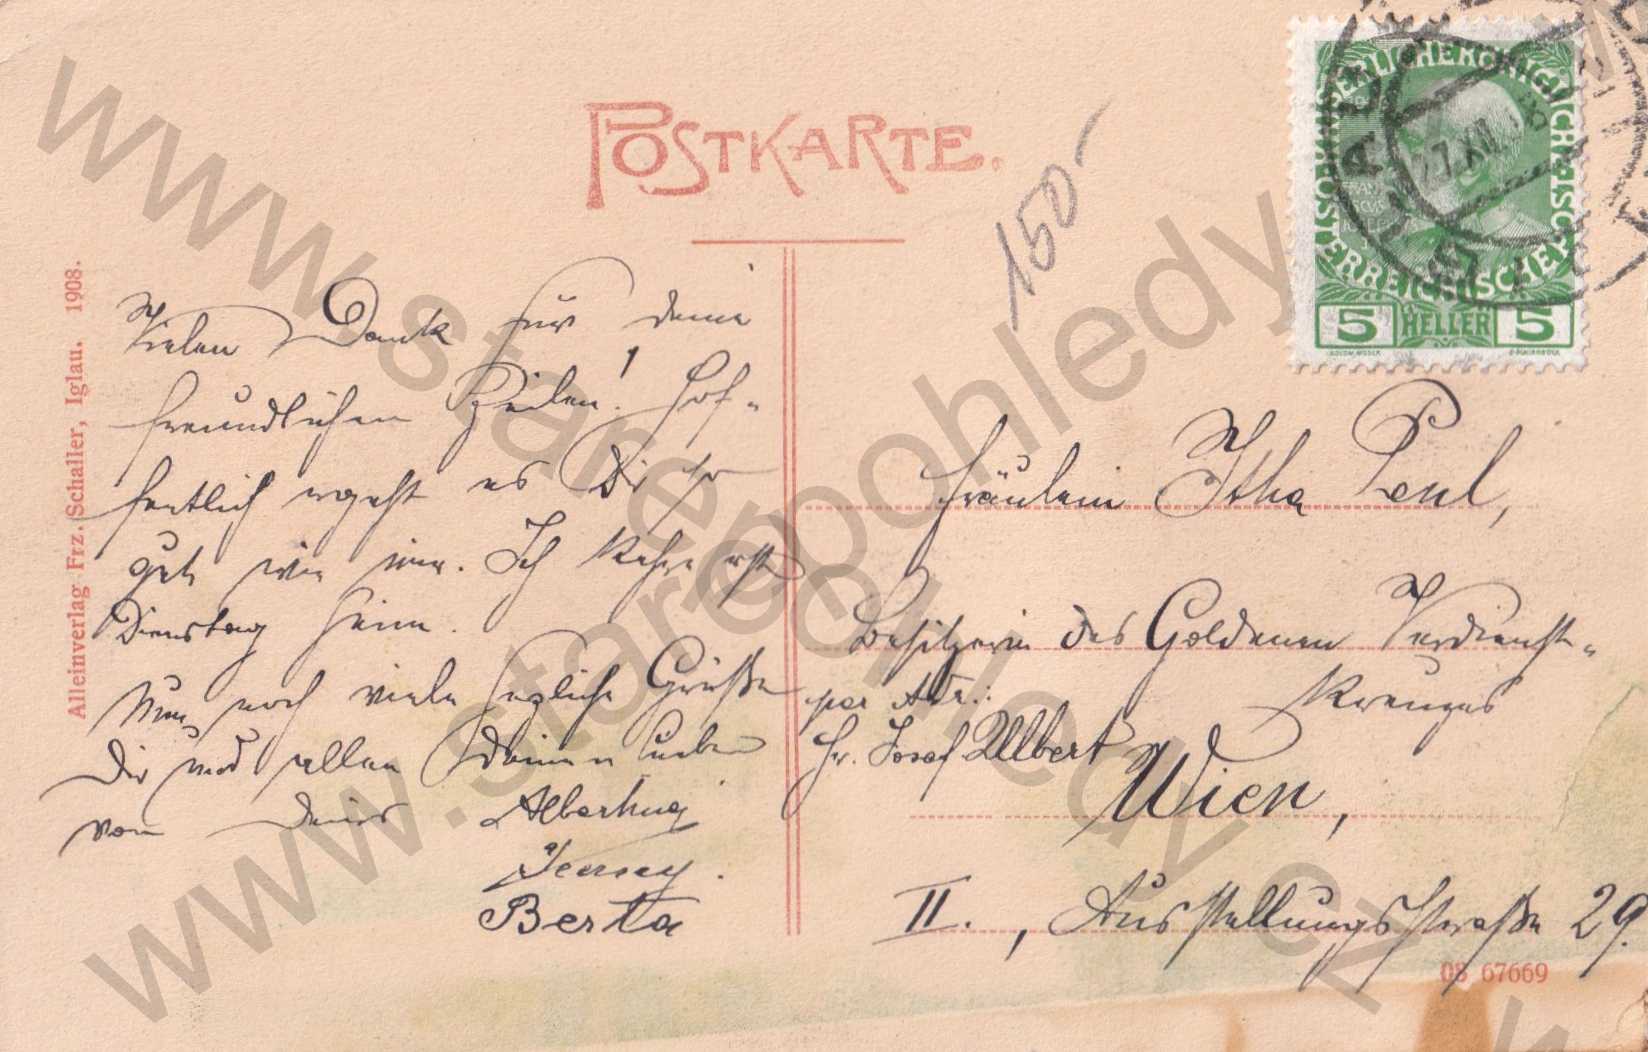 POSTKARTE.
150-
KAISERLICHE KÖNIGLICHE ÖSTERREICHISCHE POST
5 HELLER 5
Alleinverlag Frz. Schaller, Iglau. 1908.
Vielen Dank für deine
freundlichen Zeilen! Hof-
fentlich ergeht es Dir so
gut wie mir. Ich kehre erst
Dienstag heim.
Nun noch viele herzliche Grüße
Dir und allen Deinen Lieben
von Deiner
Berta
Fräulein Itha
Besitzerin des Goldenen Verdienst-
Kreuzes
per Adr.:
Hr. Josef Ullbert
Wien,
II., Ausstellungsstraße 29.
08 67669
www.starepohledy.cz
www.starepohledy.cz